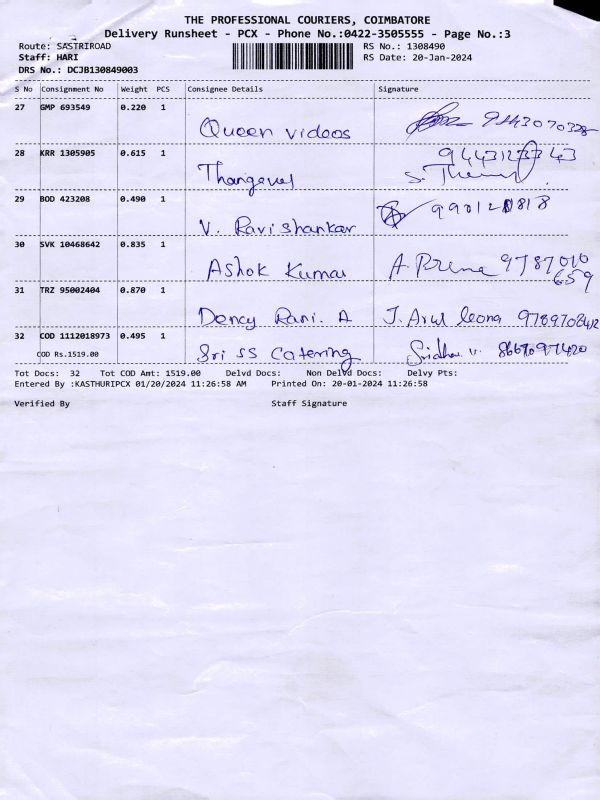 THE PROFESSIONAL COURIERS, COIMBATORE
Delivery Runsheet - PCX - Phone No.:0422-3505555 - Page No.:3
Route: SASTRIROAD RS No.: 1308490
Staff: HARI RS Date: 20-Jan-2024
DRS No.: DCJB130849003
S No Consignment No Weight PCS Consignee Details Signature
27 GMP 693549 0.220 1
Queen videos
28 KRR 1305905 0.615 1
Thangavel
29 BOD 423208 0.490 1
V. Ravi shankar
30 SVK 10468642 0.835 1
Ashok Kumar 9787010
659
31 TRZ 95002404 0.870 1
Dency Rani. A J. Arul leona
32 COD 1112018973 0.495 1
COD Rs.1519.00 Sri SS Catering
Tot Docs: 32 Tot COD Amt: 1519.00 Delvd Docs: Non Delvd Docs: Delvy Pts:
Entered By :KASTHURIPCX 01/20/2024 11:26:58 AM Printed On: 20-01-2024 11:26:58
Verified By Staff Signature